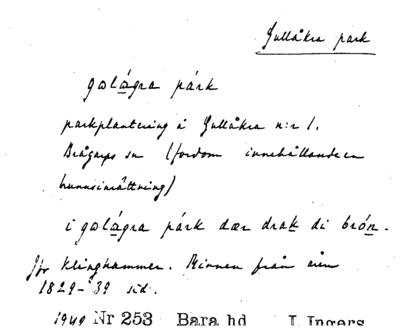 Gullåkra park
gɷlágra párk
parkplantering å Gullåkra n:r 1.
Brågarps sn (fordom innehållande en
brunnsinrättning)
i gɷlágra párk dær drak di brón.
Jfr Klinghammer. Minnen från åren
1829-39 sid.
1949 Nr 253 Bara hd I. Ingers